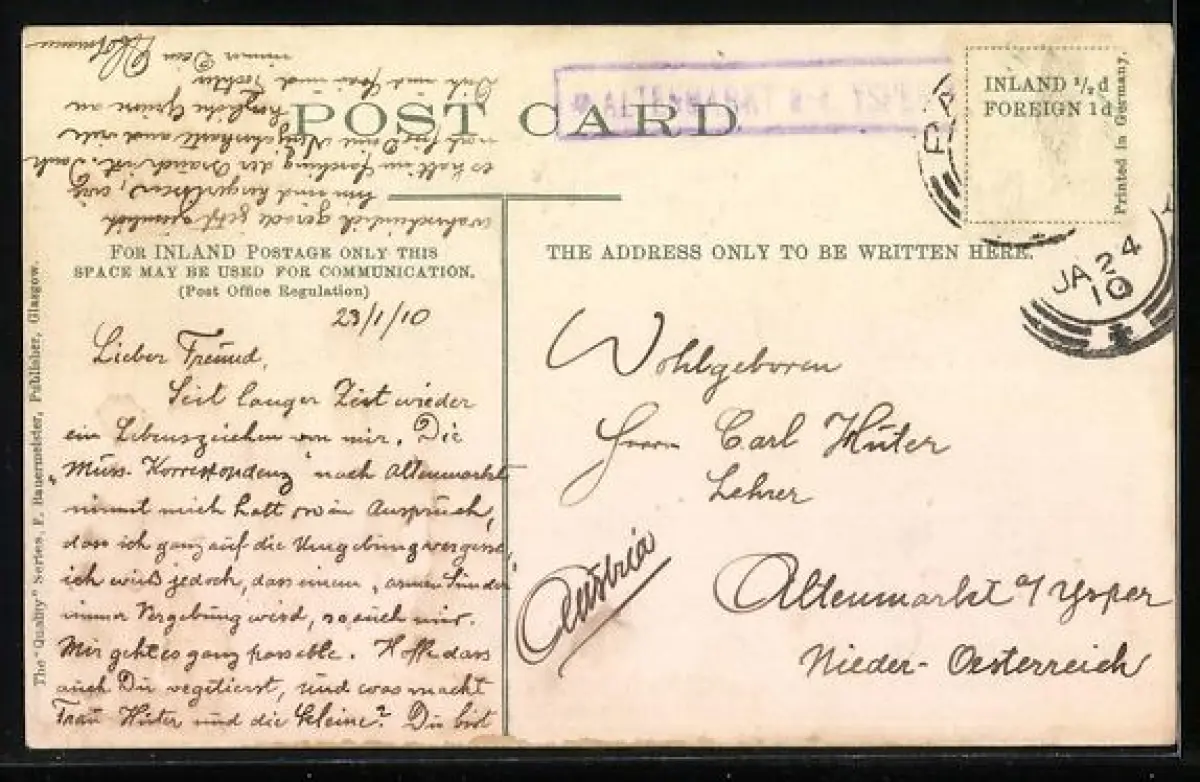 POST CARD
INLAND ½d
FOREIGN 1d
Printed in Germany.
JA 24
10
FOR INLAND POSTAGE ONLY THIS
SPACE MAY BE USED FOR COMMUNICATION.
(Post Office Regulation)
THE ADDRESS ONLY TO BE WRITTEN HERE.
The "Quality" Series, E. Bauermeister, Publisher, Glasgow.
23/1/10
Lieber Freund,
Seit langer Zeit wieder
ein Lebenszeichen von mir. Die
"Muss-Korrespondenz" nach Altenmarkt
nimmt mich halt so in Anspruch,
dass ich ganz auf die Umgebung vergesse,
ich weiß jedoch, dass einem "armen Sünder"
immer Vergebung wird, so auch mir.
Mir geht es ganz passable. Hoffe dass
auch Du vegitierst, und was macht
Frau Hüter und die Kleine? Du bist
wahrscheinlich gerade jetzt ziemlich
es halt im Fasching der Brauch ist. Dank
noch für Deine Neujahrskarte und viele
herzliche Grüsse an
Dich und Frau und Tochter
immer Dein
Wohlgeboren
Herrn Carl Hüter
Lehrer
Altenmarkt a/ Ysper
Nieder-Oesterreich
Austria